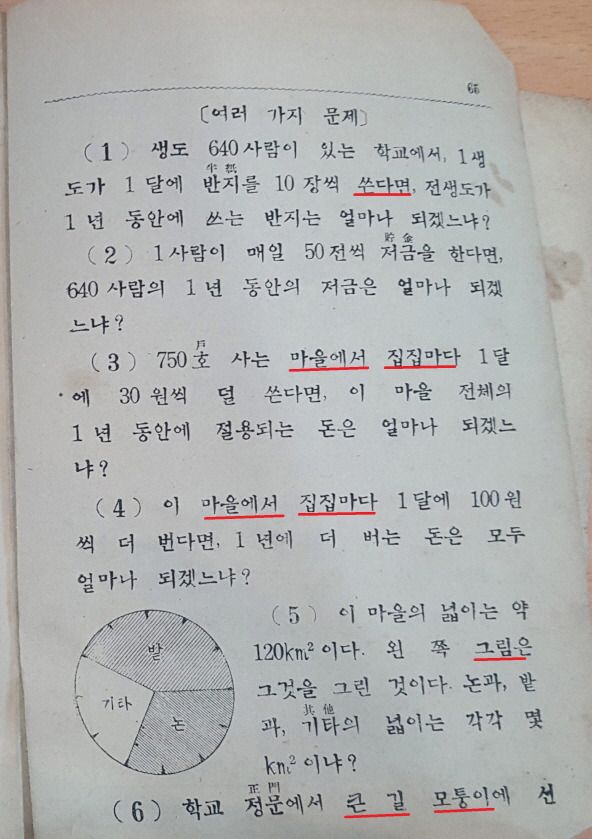 65
[여러 가지 문제]
(1) 생도 640사람이 있는 학교에서, 1생
半紙
도가 1달에 반지를 10장씩 쓴다면, 전생도가
1년 동안에 쓰는 반지는 얼마나 되겠느냐?
貯金
(2) 1사람이 매일 50전씩 저금을 한다면,
640사람의 1년 동안의 저금은 얼마나 되겠
느냐?
戶
(3) 750호 사는 마을에서 집집마다 1달
에 30원씩 덜 쓴다면, 이 마을 전체의
1년 동안에 절용되는 돈은 얼마나 되겠느
냐?
(4) 이 마을에서 집집마다 1달에 100원
씩 더 번다면, 1년에 더 버는 돈은 모두
얼마나 되겠느냐?
밭
기타
논
(5) 이 마을의 넓이는 약
120km²이다. 왼 쪽 그림은
그것을 그린 것이다. 논과, 밭
其他
과, 기타의 넓이는 각각 몇
km²이냐?
正門
(6) 학교 정문에서 큰 길 모퉁이에 선